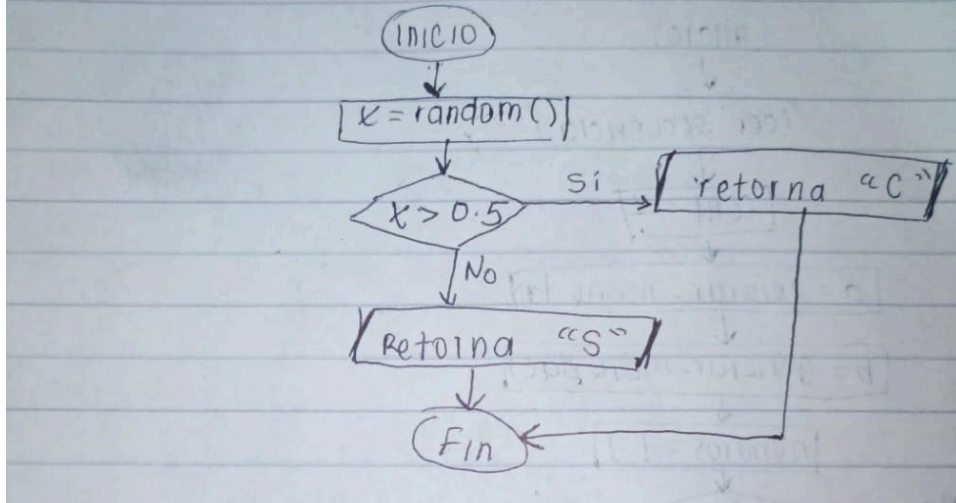 INICIO
x = random()
x > 0.5
Si
retorna "C"
No
Retorna "S"
Fin